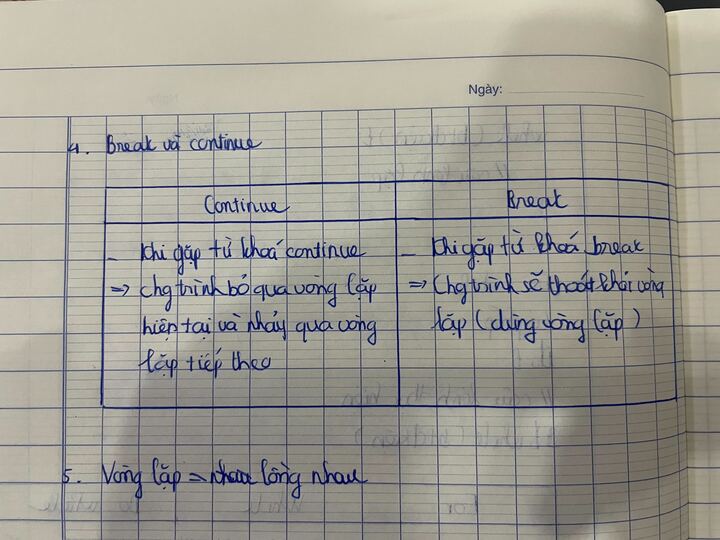 Ngày:
4. Break và continue
Continue
Break
- Khi gặp từ khoá continue
=> Chg trình bỏ qua vòng lặp
hiện tại và nhảy qua vòng
lặp tiếp theo
- Khi gặp từ khoá break
=> Chg trình sẽ thoát khỏi vòng
lặp (dừng vòng lặp)
5. Vòng lặp lồng nhau